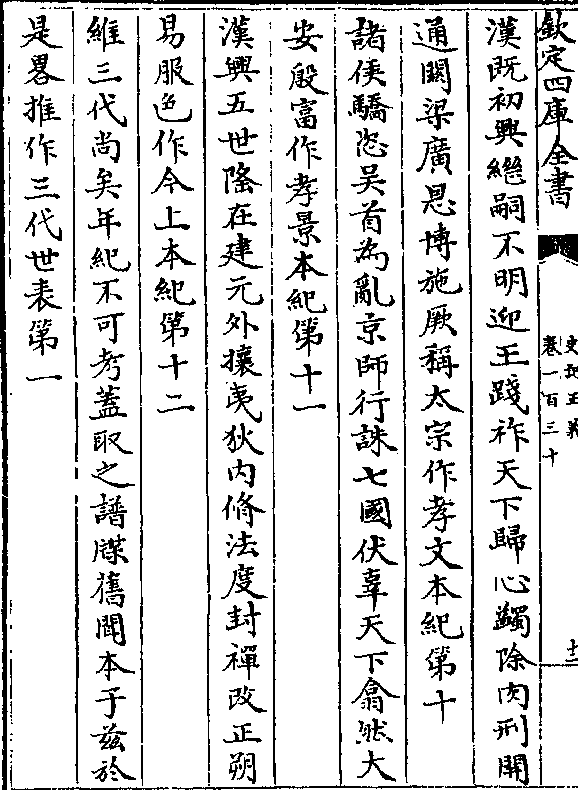 欽定四庫全書
史記正義
卷一百三十
十二
漢既初興繼嗣不明迎王踐祚天下歸心蠲除肉刑開
通關梁廣恩博施厥稱太宗作孝文本紀第十
諸侯驕恣吳首為亂京師行誅七國伏辜天下翕然大
安殷富作孝景本紀第十一
漢興五世隆在建元外攘夷狄内脩法度封禪改正朔
易服色作今上本紀第十二
維三代尚矣年紀不可考蓋取之譜牒舊聞本于兹於
是畧推作三代世表第一